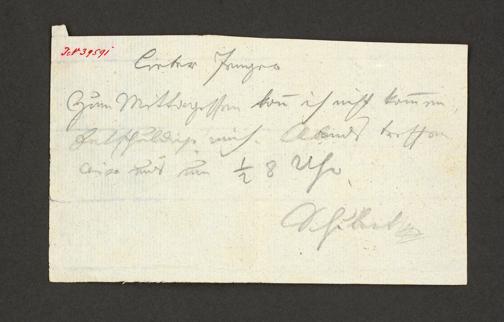 JcN 39591
Lieber Jenger
Zum Mittagessen kan̄ ich nicht kom̄en,
Entschuldige mich. Abends treffen
wir uns um ½ 8 Uhr.
Schubert